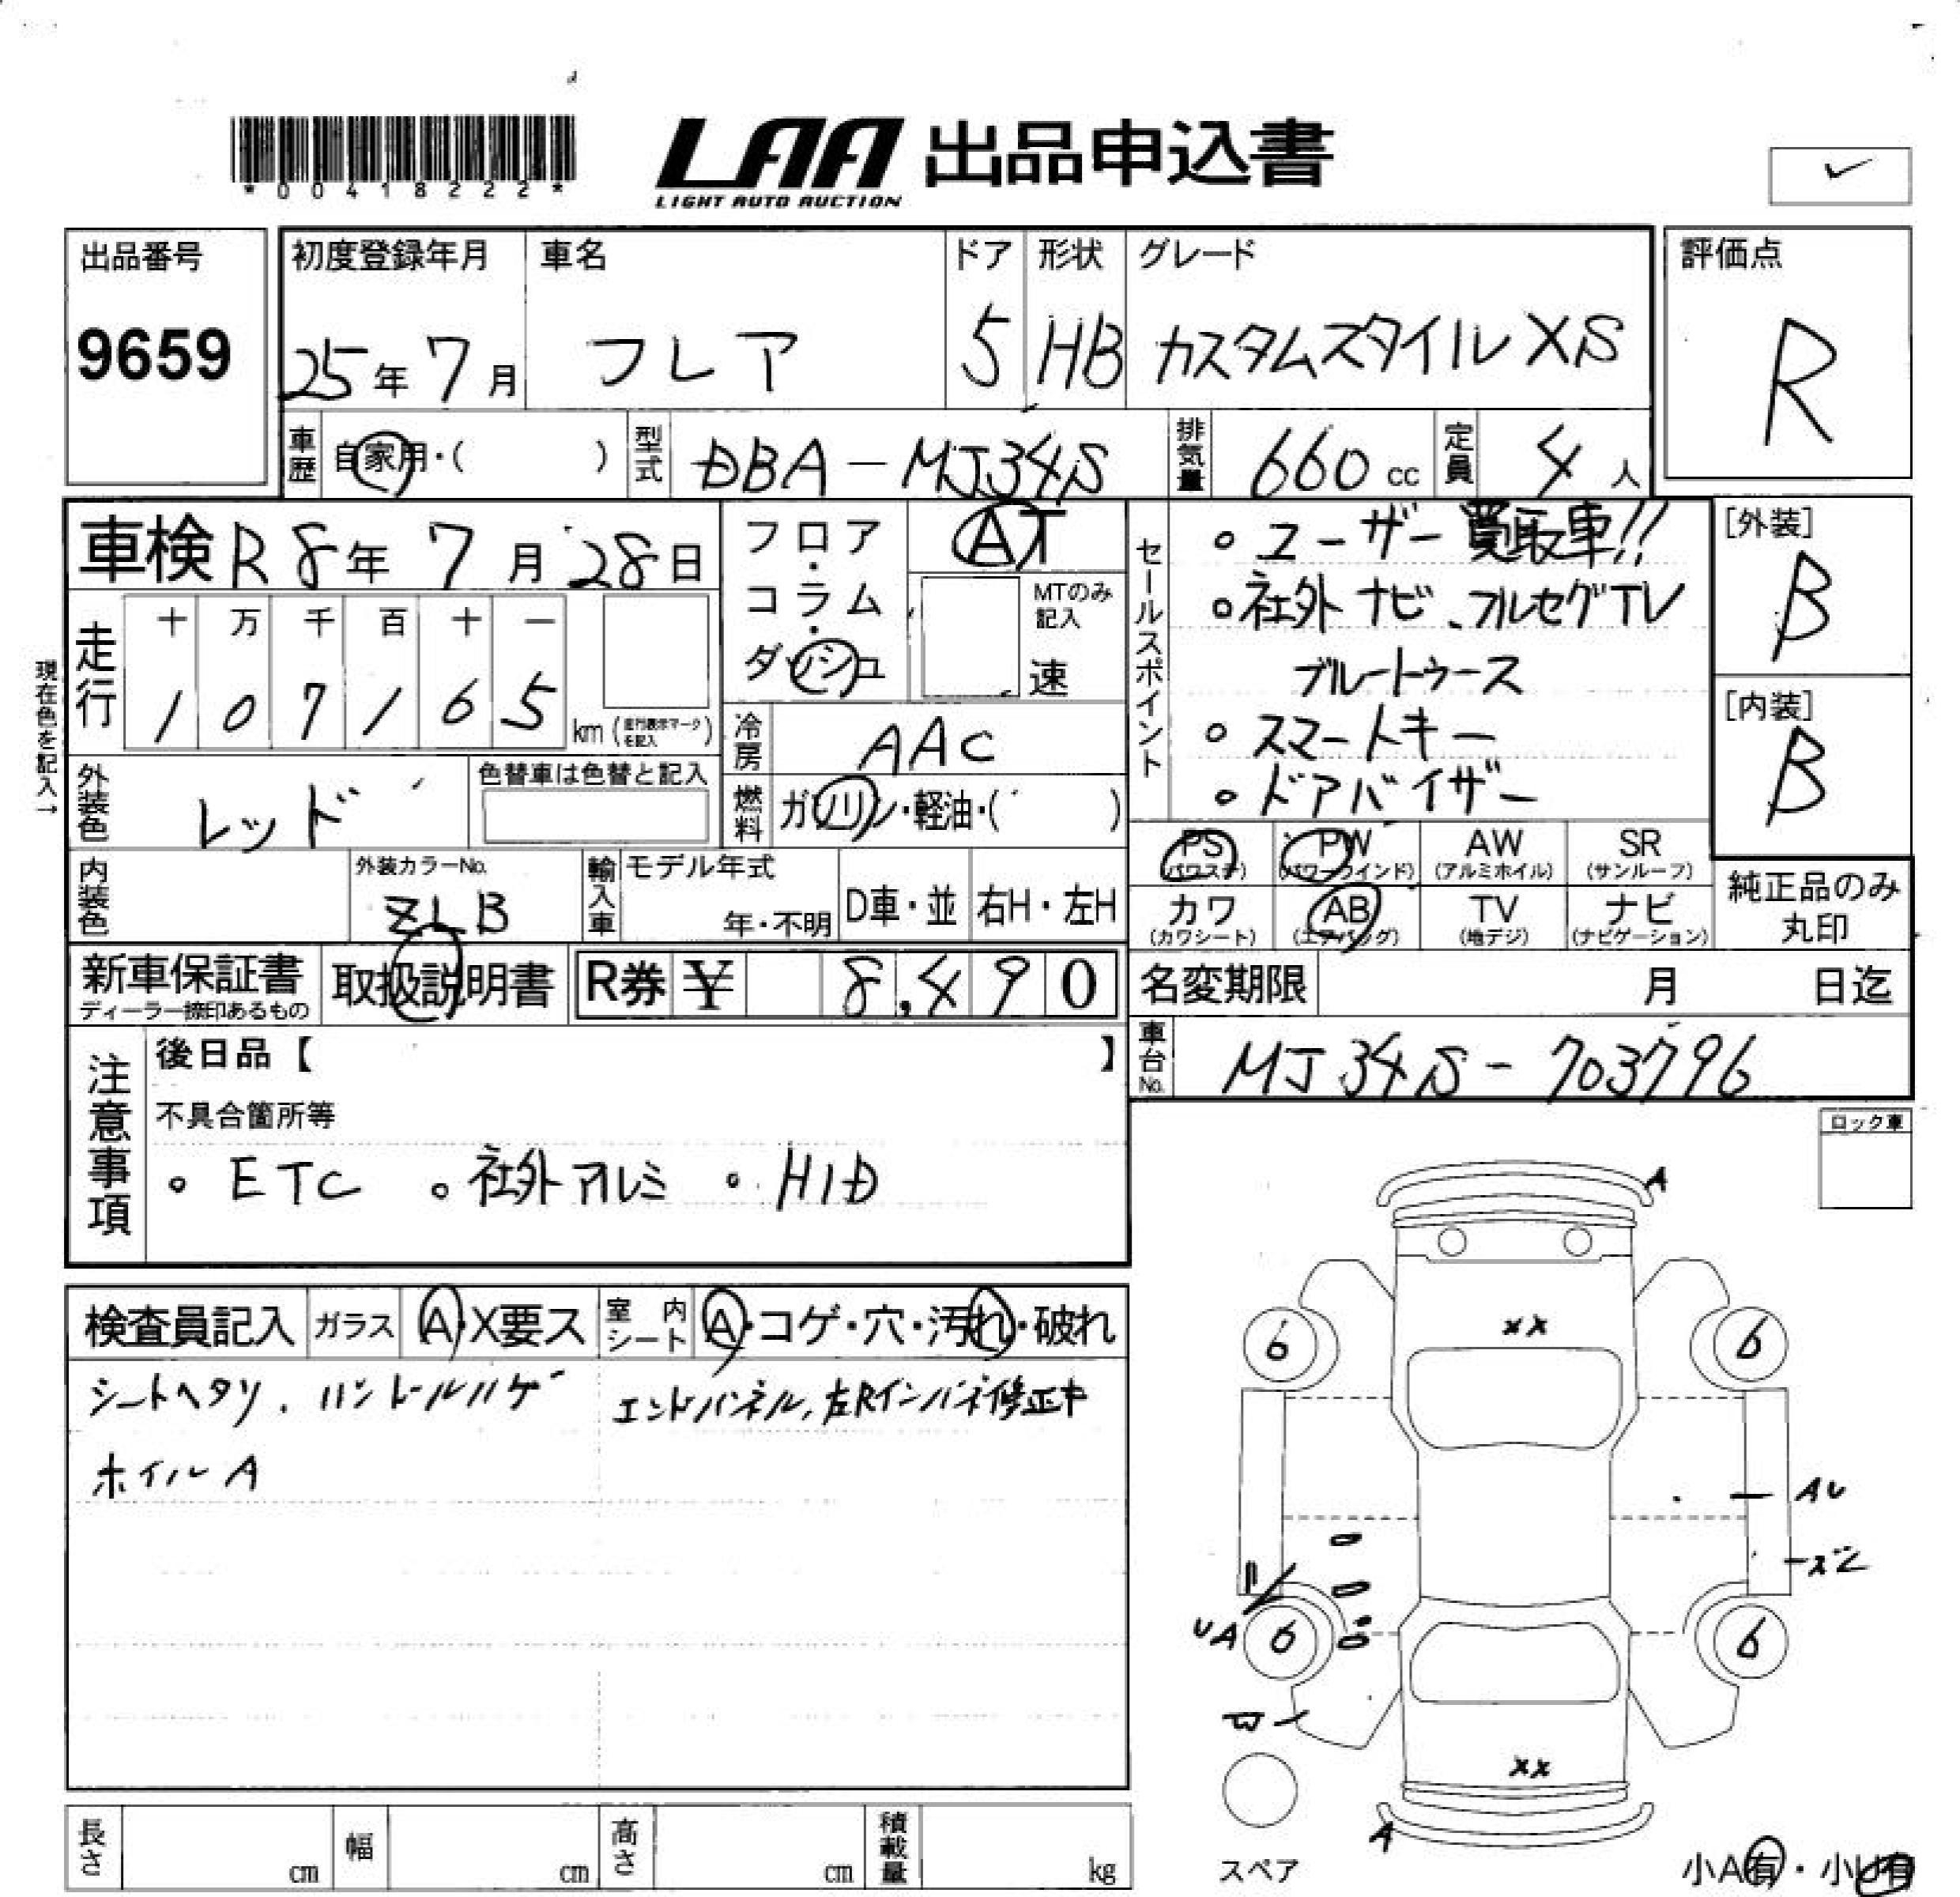 *00418222*
LAA 出品申込書
LIGHT AUTO AUCTION
出品番号
9659
初度登録年月
25年 7月
車名
フレア
ドア
5
形状
HB
グレード
カスタムスタイル XS
評価点
R
車歴 自家用・( )
型式 DBA-MJ34S
排気量 660 cc
定員 4人
車検 R8年 7月 28日
現在色を記入→
走行
十 万 千 百 十 一
1 0 7 1 6 5
km (走行表示マークを記入)
フロア・コラム・ダッシュ
AT
MTのみ記入
速
冷房 AAC
燃料 ガソリン・軽油・( )
外装色 レッド
色替車は色替と記入
内装色
外装カラーNo.
ZLB
輸入車
モデル年式
年・不明
D車・並
右H・左H
セールスポイント
。ユーザー買取車!!
。社外ナビ、フルセグTV
ブルートゥース
。スマートキー
。ドアバイザー
[外装]
B
[内装]
B
PS (パワステ)
PW (パワーウインド)
AW (アルミホイル)
SR (サンルーフ)
カワ (カワシート)
AB (エアバッグ)
TV (地デジ)
ナビ (ナビゲーション)
純正品のみ
丸印
新車保証書
ディーラー捺印あるもの
取扱説明書
R券 ¥ 8,490
名変期限 月 日迄
車台No. MJ34S-703796
注意事項
後日品【 】
不具合箇所等
。ETC 。社外アルミ 。HID
ロック車
検査員記入
ガラス A・X要ス
室内シート A・コゲ・穴・汚れ・破れ
シートヘタリ. ハンドルハゲ
エンドパネル,左Rインパネ修正中
ホイルA
A
6
6
××
AU
UA
6
6
××
A
スペア
小A有・小U有
長さ cm
幅 cm
高さ cm
積載量 kg